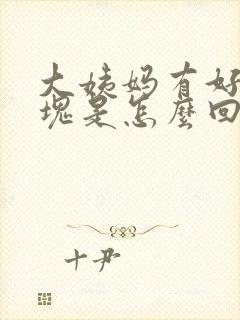 大姨妈有好
块是怎麽回
十尹